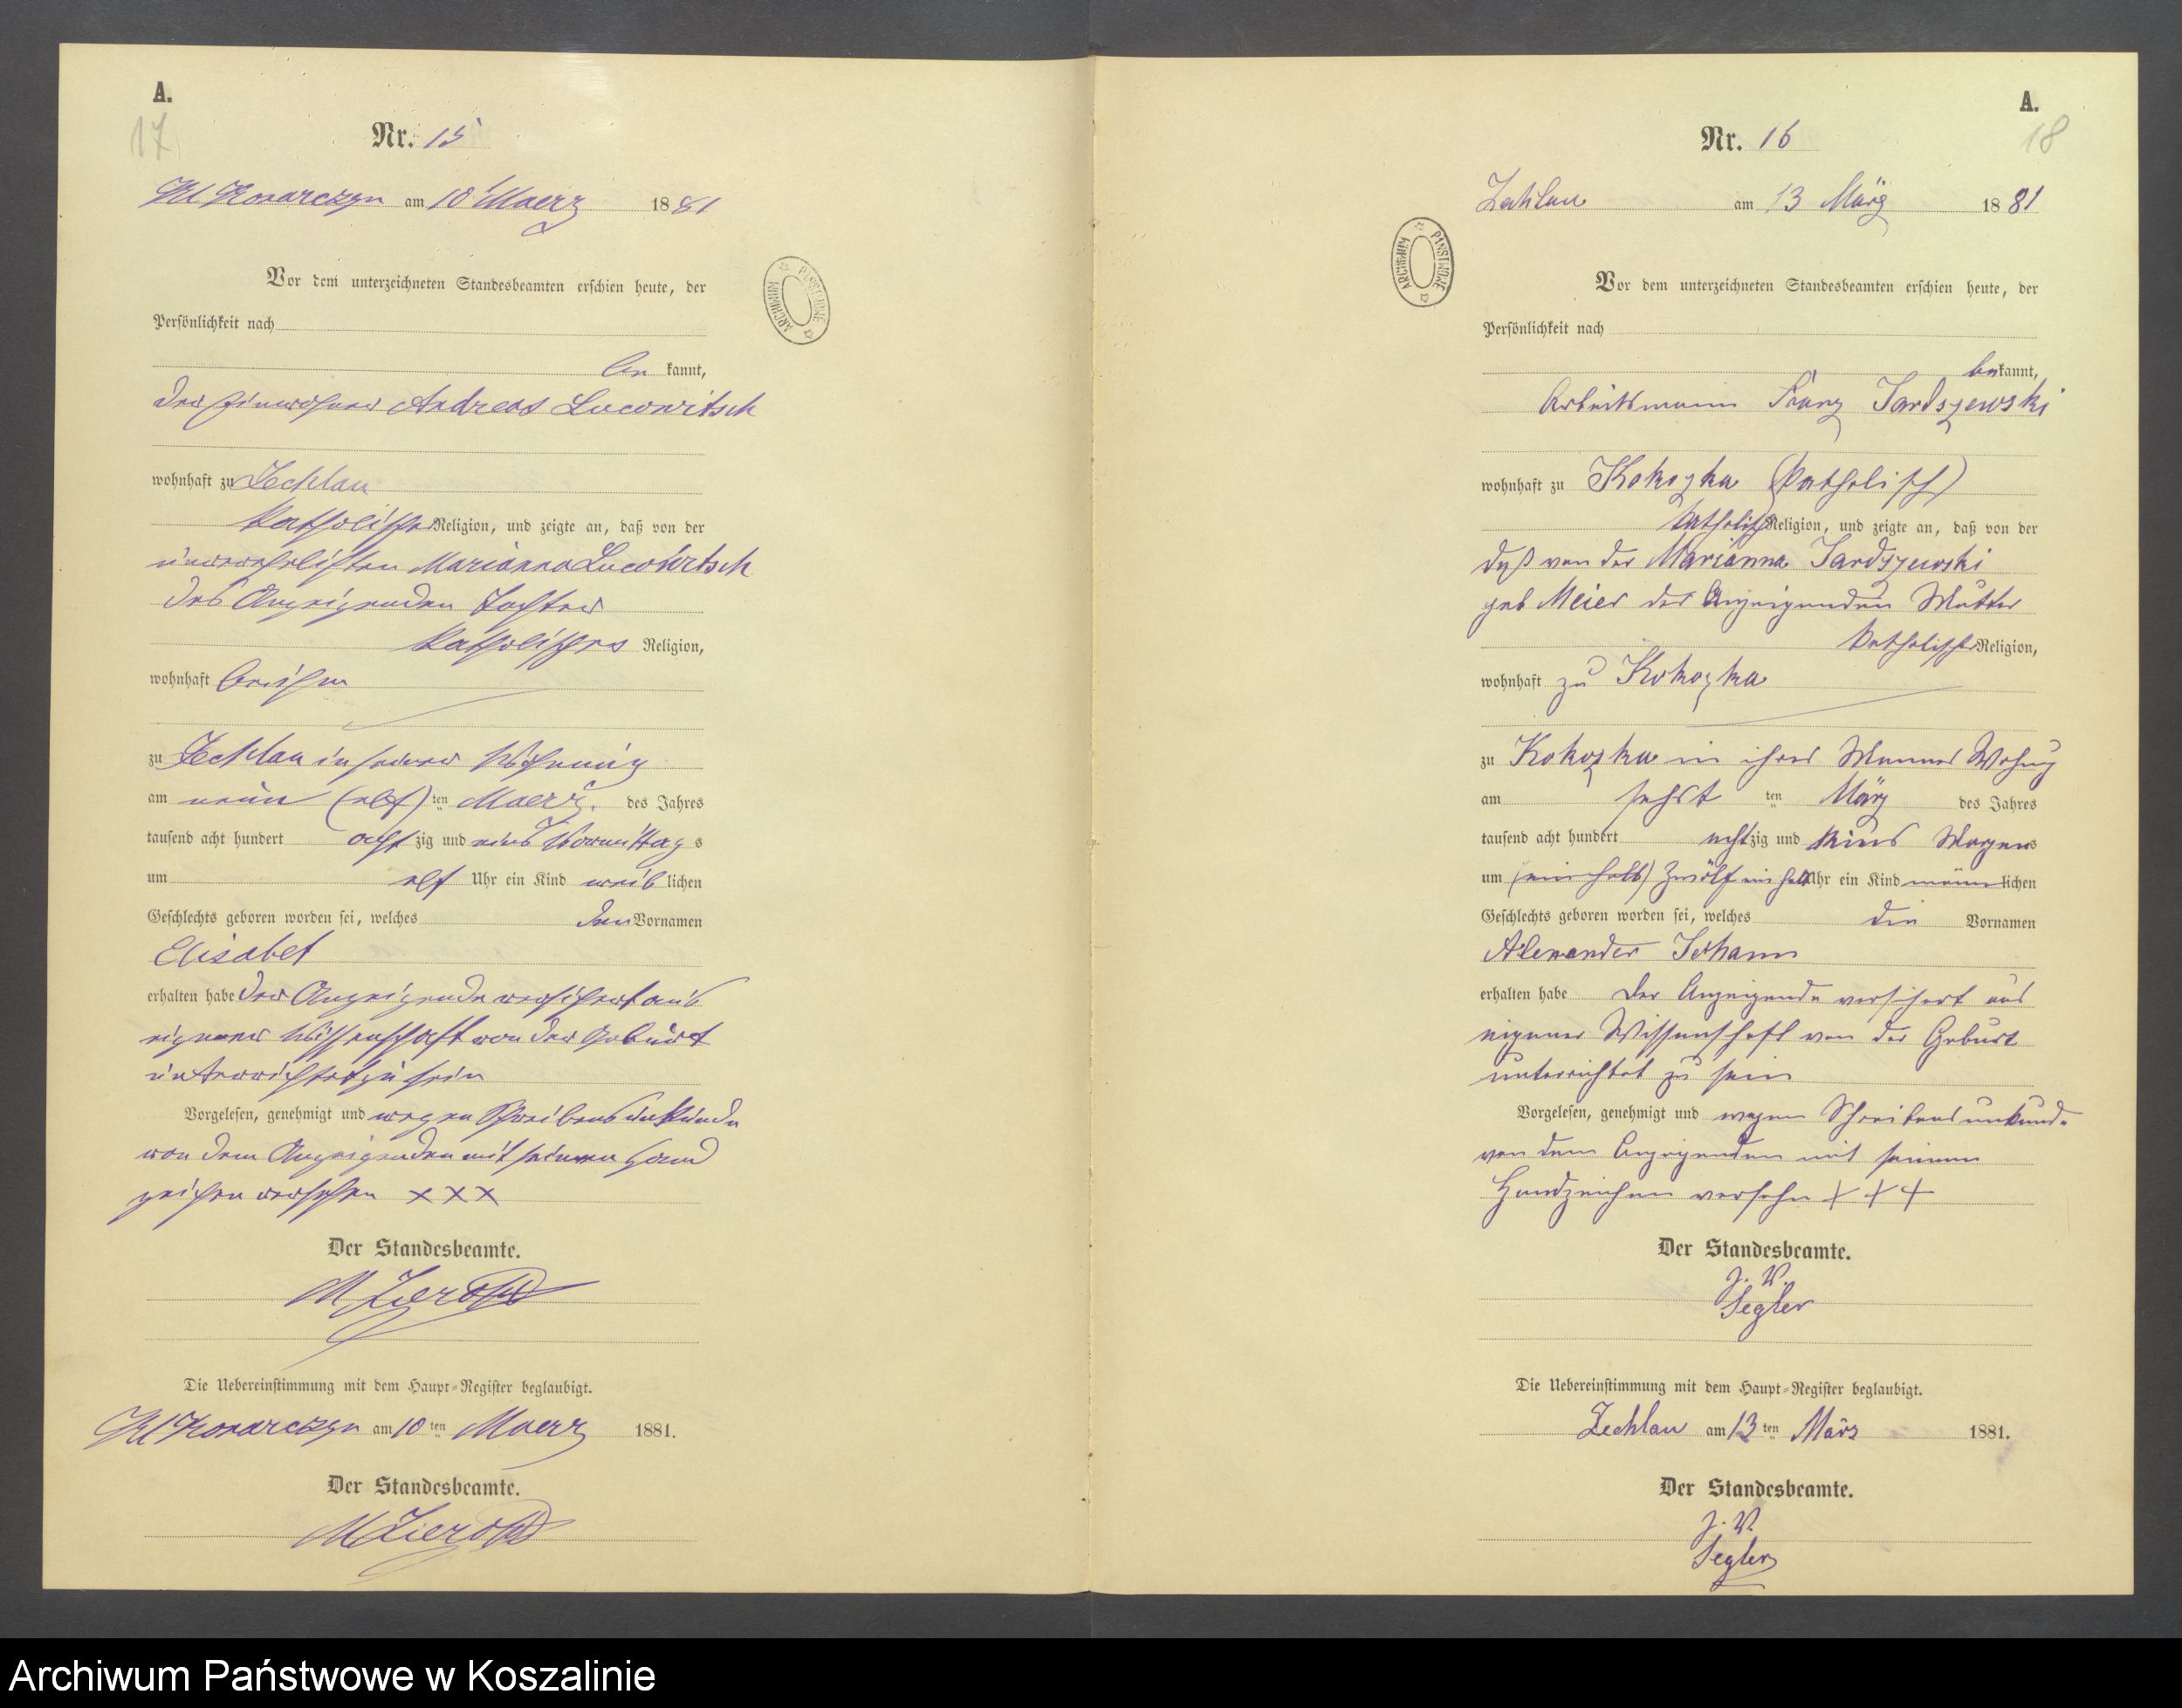 A.
17
Nr. 15
Kl Konarczyn am 10 Maerz 1881
Vor dem unterzeichneten Standesbeamten erschien heute, der
Persönlichkeit nach
be kannt,
der Einwohner Andreas Lucowitsch
wohnhaft zu Zechlau
katholischer Religion, und zeigte an, daß von der
unverehelichten Marianna Lucowitsch
des Anzeigenden Tochter
katholischer Religion,
wohnhaft bei ihm
zu Zechlau in seiner Wohnung
am neun (elf) ten Maerz. des Jahres
tausend acht hundert acht zig und eins Vormittag s
um elf Uhr ein Kind weib lichen
Geschlechts geboren worden sei, welches den Vornamen
Elisabet
erhalten habe der Anzeigende versichert aus
eigener Wissenschaft von der Geburt
unterrichtet zu sein
Vorgelesen, genehmigt und wegen Schreibensunkunde
von dem Anzeigenden mit seinem Hand
zeichen versehen XXX
Der Standesbeamte.
M
Die Uebereinstimmung mit dem Haupt-Register beglaubigt.
Kl Konarczyn am 10 ten Maerz 1881.
Der Standesbeamte.
M
A.
18
Nr. 16
Zechlau am 13 März 1881
Vor dem unterzeichneten Standesbeamten erschien heute, der
Persönlichkeit nach
bekannt,
Arbeitsmann Franz Jardszewski
wohnhaft zu Kokoszka (katholisch)
katholisch Religion, und zeigte an, daß von der
daß von der Marianna Jardszewski
geb Meier der Anzeigenden Mutter
katholischer Religion,
wohnhaft zu Kokoszka
zu Kokoszka in ihres Mannes Wohnug
am sechst ten März des Jahres
tausend acht hundert achtzig und eins Morgens
um (ein halb) zwölf ein halb Uhr ein Kind männlichen
Geschlechts geboren worden sei, welches die Vornamen
Alexander Johann
erhalten habe Der Anzeigende versichert aus
eigener Wissenschaft von der Geburt
unterrichtet zu sein
Vorgelesen, genehmigt und wegen Schreibensunkund.
von dem Anzeigenden mit seinem
Handzeichen versehn + + +
Der Standesbeamte.
J. V.
Segler
Die Uebereinstimmung mit dem Haupt-Register beglaubigt.
Zechlau am 13 ten März 1881.
Der Standesbeamte.
J. V.
Segler
ARCHIWUM PAŃSTWOWE
ARCHIWUM PAŃSTWOWE
Archiwum Państwowe w Koszalinie